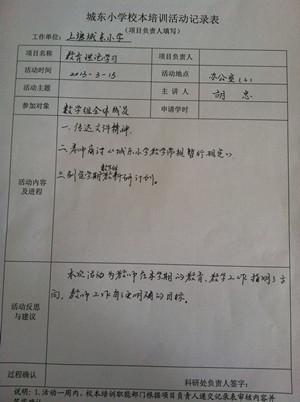 城东小学校本培训活动记录表
(项目负责人填写)
工作单位: 上塘城东小学
项目名称 教育理论学习
活动时间 2013-3-15 活动地点 办公室(4)
活动主题 主讲人 胡忠
参加对象 数学组全体成员 申请学时
活动内容及进程
一. 传达文件精神.
二. 集中商讨《城东小学教学常规暂行规定》
三. 制定学期教研计划。
活动反思与建议
本次活动为教师在本学期的教育、教学工作指明了方
向, 教师工作有了更明确的目标。
过程确认 科研处负责人签字:
说明: 1. 活动一周内, 校本培训职能部门根据项目负责人递交记录表审核内容并